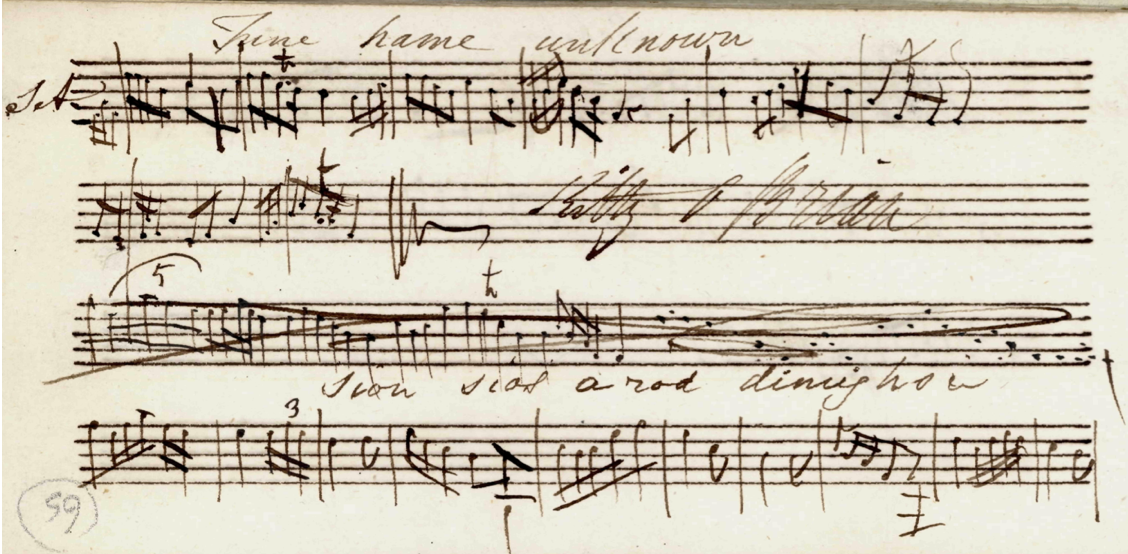 Tune name unknown
Set
Kitty O Brian
5
sion sios a rod dimighou
3
59